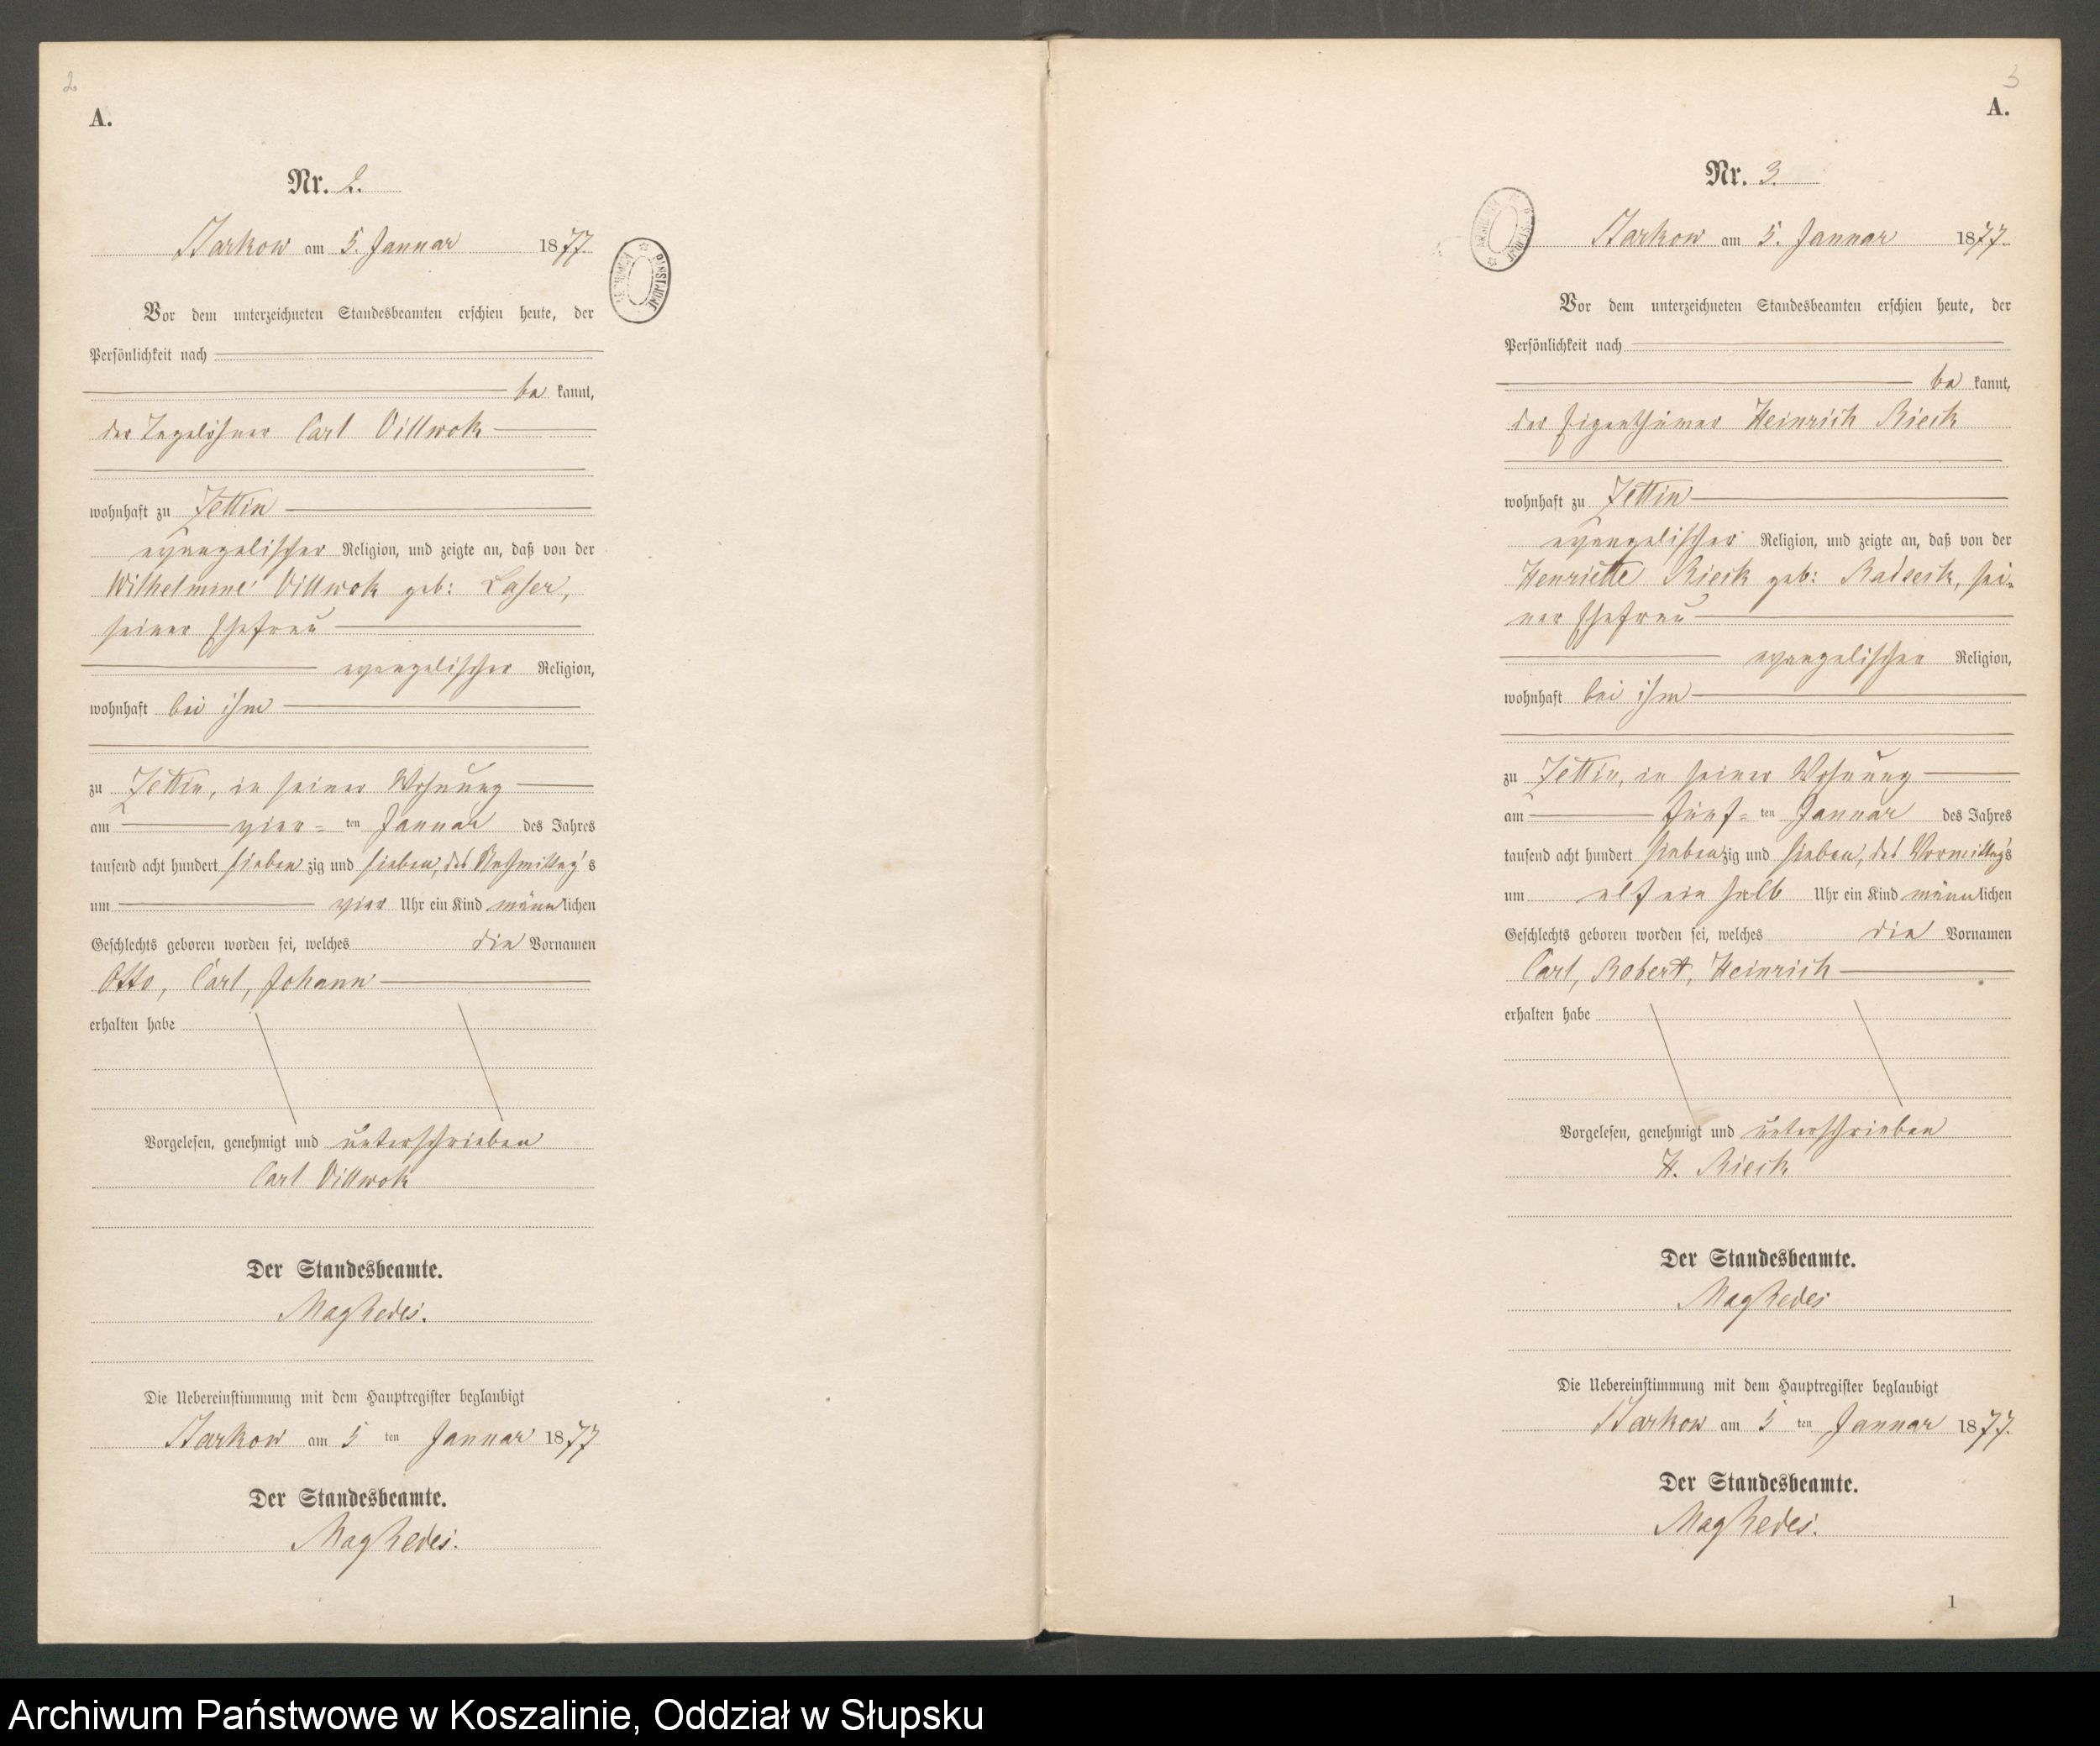 2
A.
Nr. 2.
Starkow am 5. Januar 1877.
Vor dem unterzeichneten Standesbeamten erschien heute, der
Persönlichkeit nach
be kannt,
der Tagelöhner Carl Villwok
wohnhaft zu Zettin
evangelischer Religion, und zeigte an, daß von der
Wilhelmine Villwok geb: Laser,
seiner Ehefrau
evangelischer Religion,
wohnhaft bei ihm
zu Zettin, in seiner Wohnung
am vier= ten Januar des Jahres
tausend acht hundert sieben zig und sieben, des Nachmittag's
um vier Uhr ein Kind männlichen
Geschlechts geboren worden sei, welches die Vornamen
Otto, Carl, Johann
erhalten habe
Vorgelesen, genehmigt und unterschrieben
Carl Villwok
Der Standesbeamte.
Die Uebereinstimmung mit dem Hauptregister beglaubigt
Starkow am 5 ten Januar 1877
Der Standesbeamte.
3
A.
Nr. 3.
Starkow am 5. Januar 1877.
Vor dem unterzeichneten Standesbeamten erschien heute, der
Persönlichkeit nach
be kannt,
der Eigenthümer Heinrich Rieck
wohnhaft zu Zettin
evangelischer Religion, und zeigte an, daß von der
Henriette Rieck geb: Radseck, sei-
ner Ehefrau
evangelischer Religion,
wohnhaft bei ihm
zu Zettin, in seiner Wohnung
am fünf= ten Januar des Jahres
tausend acht hundert siebenzig und sieben, des Vormittag's
um elf ein halb Uhr ein Kind männlichen
Geschlechts geboren worden sei, welches die Vornamen
Carl, Robert, Heinrich
erhalten habe
Vorgelesen, genehmigt und unterschrieben
H. Rieck
Der Standesbeamte.
Die Uebereinstimmung mit dem Hauptregister beglaubigt
Starkow am 5 ten Januar 1877.
Der Standesbeamte.
1
Archiwum Państwowe w Koszalinie, Oddział w Słupsku